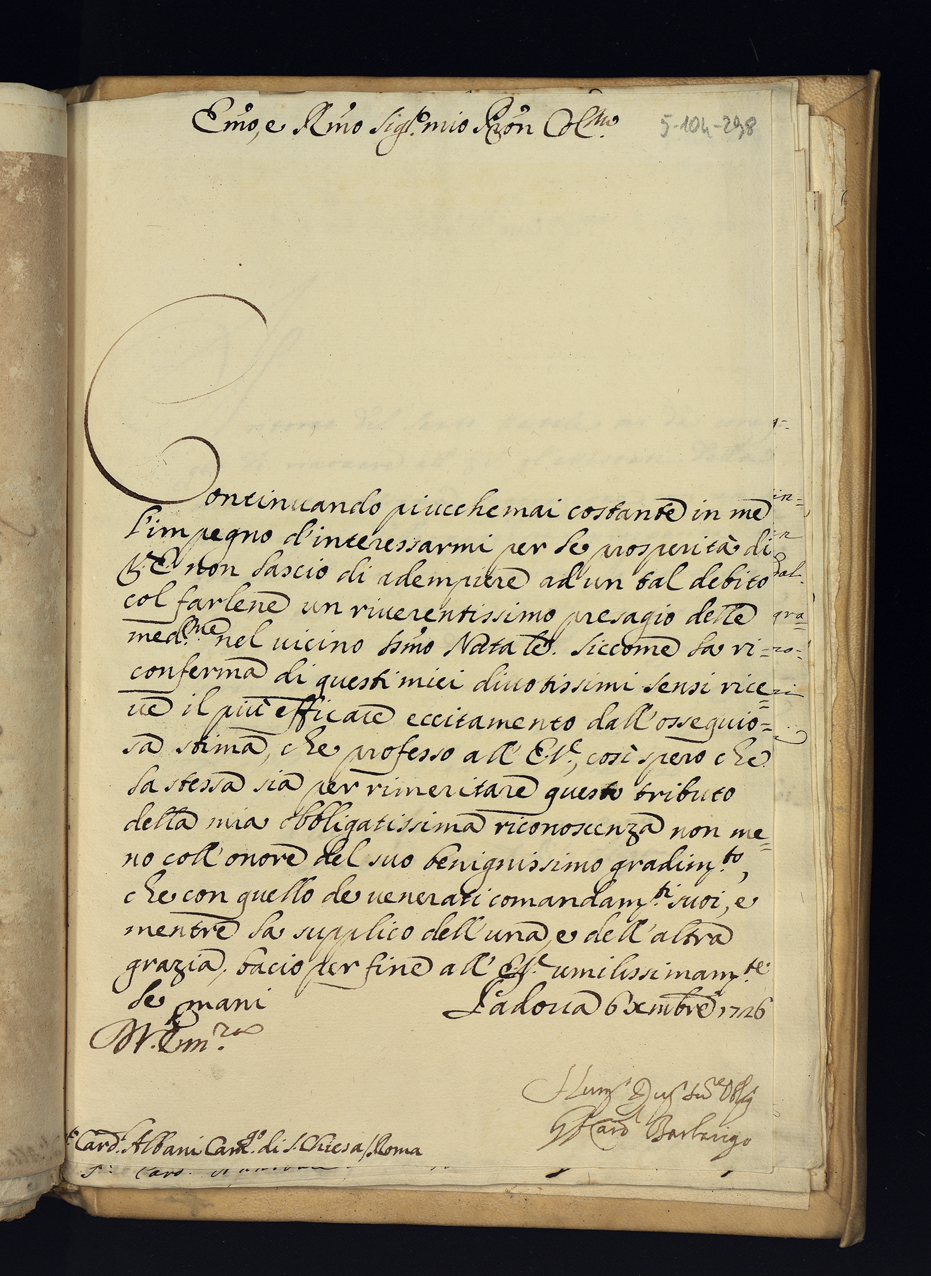 Emo, e Rmo Sigre mio Pron Colmo
5-104-298
Continuando piucchemai costante in me
l'impegno d'interessarmi per le prosperità di
V. E. non lascio di adempiere ad un tal debito
col farlene un riverentissimo presagio delle
medme nel uicino Ssmo Natale. Siccome la ri=
conferma di questi miei diuotissimi sensi rice=
ue il più efficace eccitamento dall'ossequio=
sa stima, che professo all'E. V., così spero che
la stessa sia per rimeritare questo tributo
della mia obbligatissima riconoscenza non me=
no coll'onore del suo benignissimo gradimto,
che con quello de uenerati comandamti suoi, e
mentre la supplico dell'una, e dell'altra
grazia, bacio per fine all'E. V. umilissimamte
le mani
Padoua 6 Xmbre 1726
Di V. Emza
Card. Barbarigo
Card. Albani Camgo di S. Chiesa / Roma